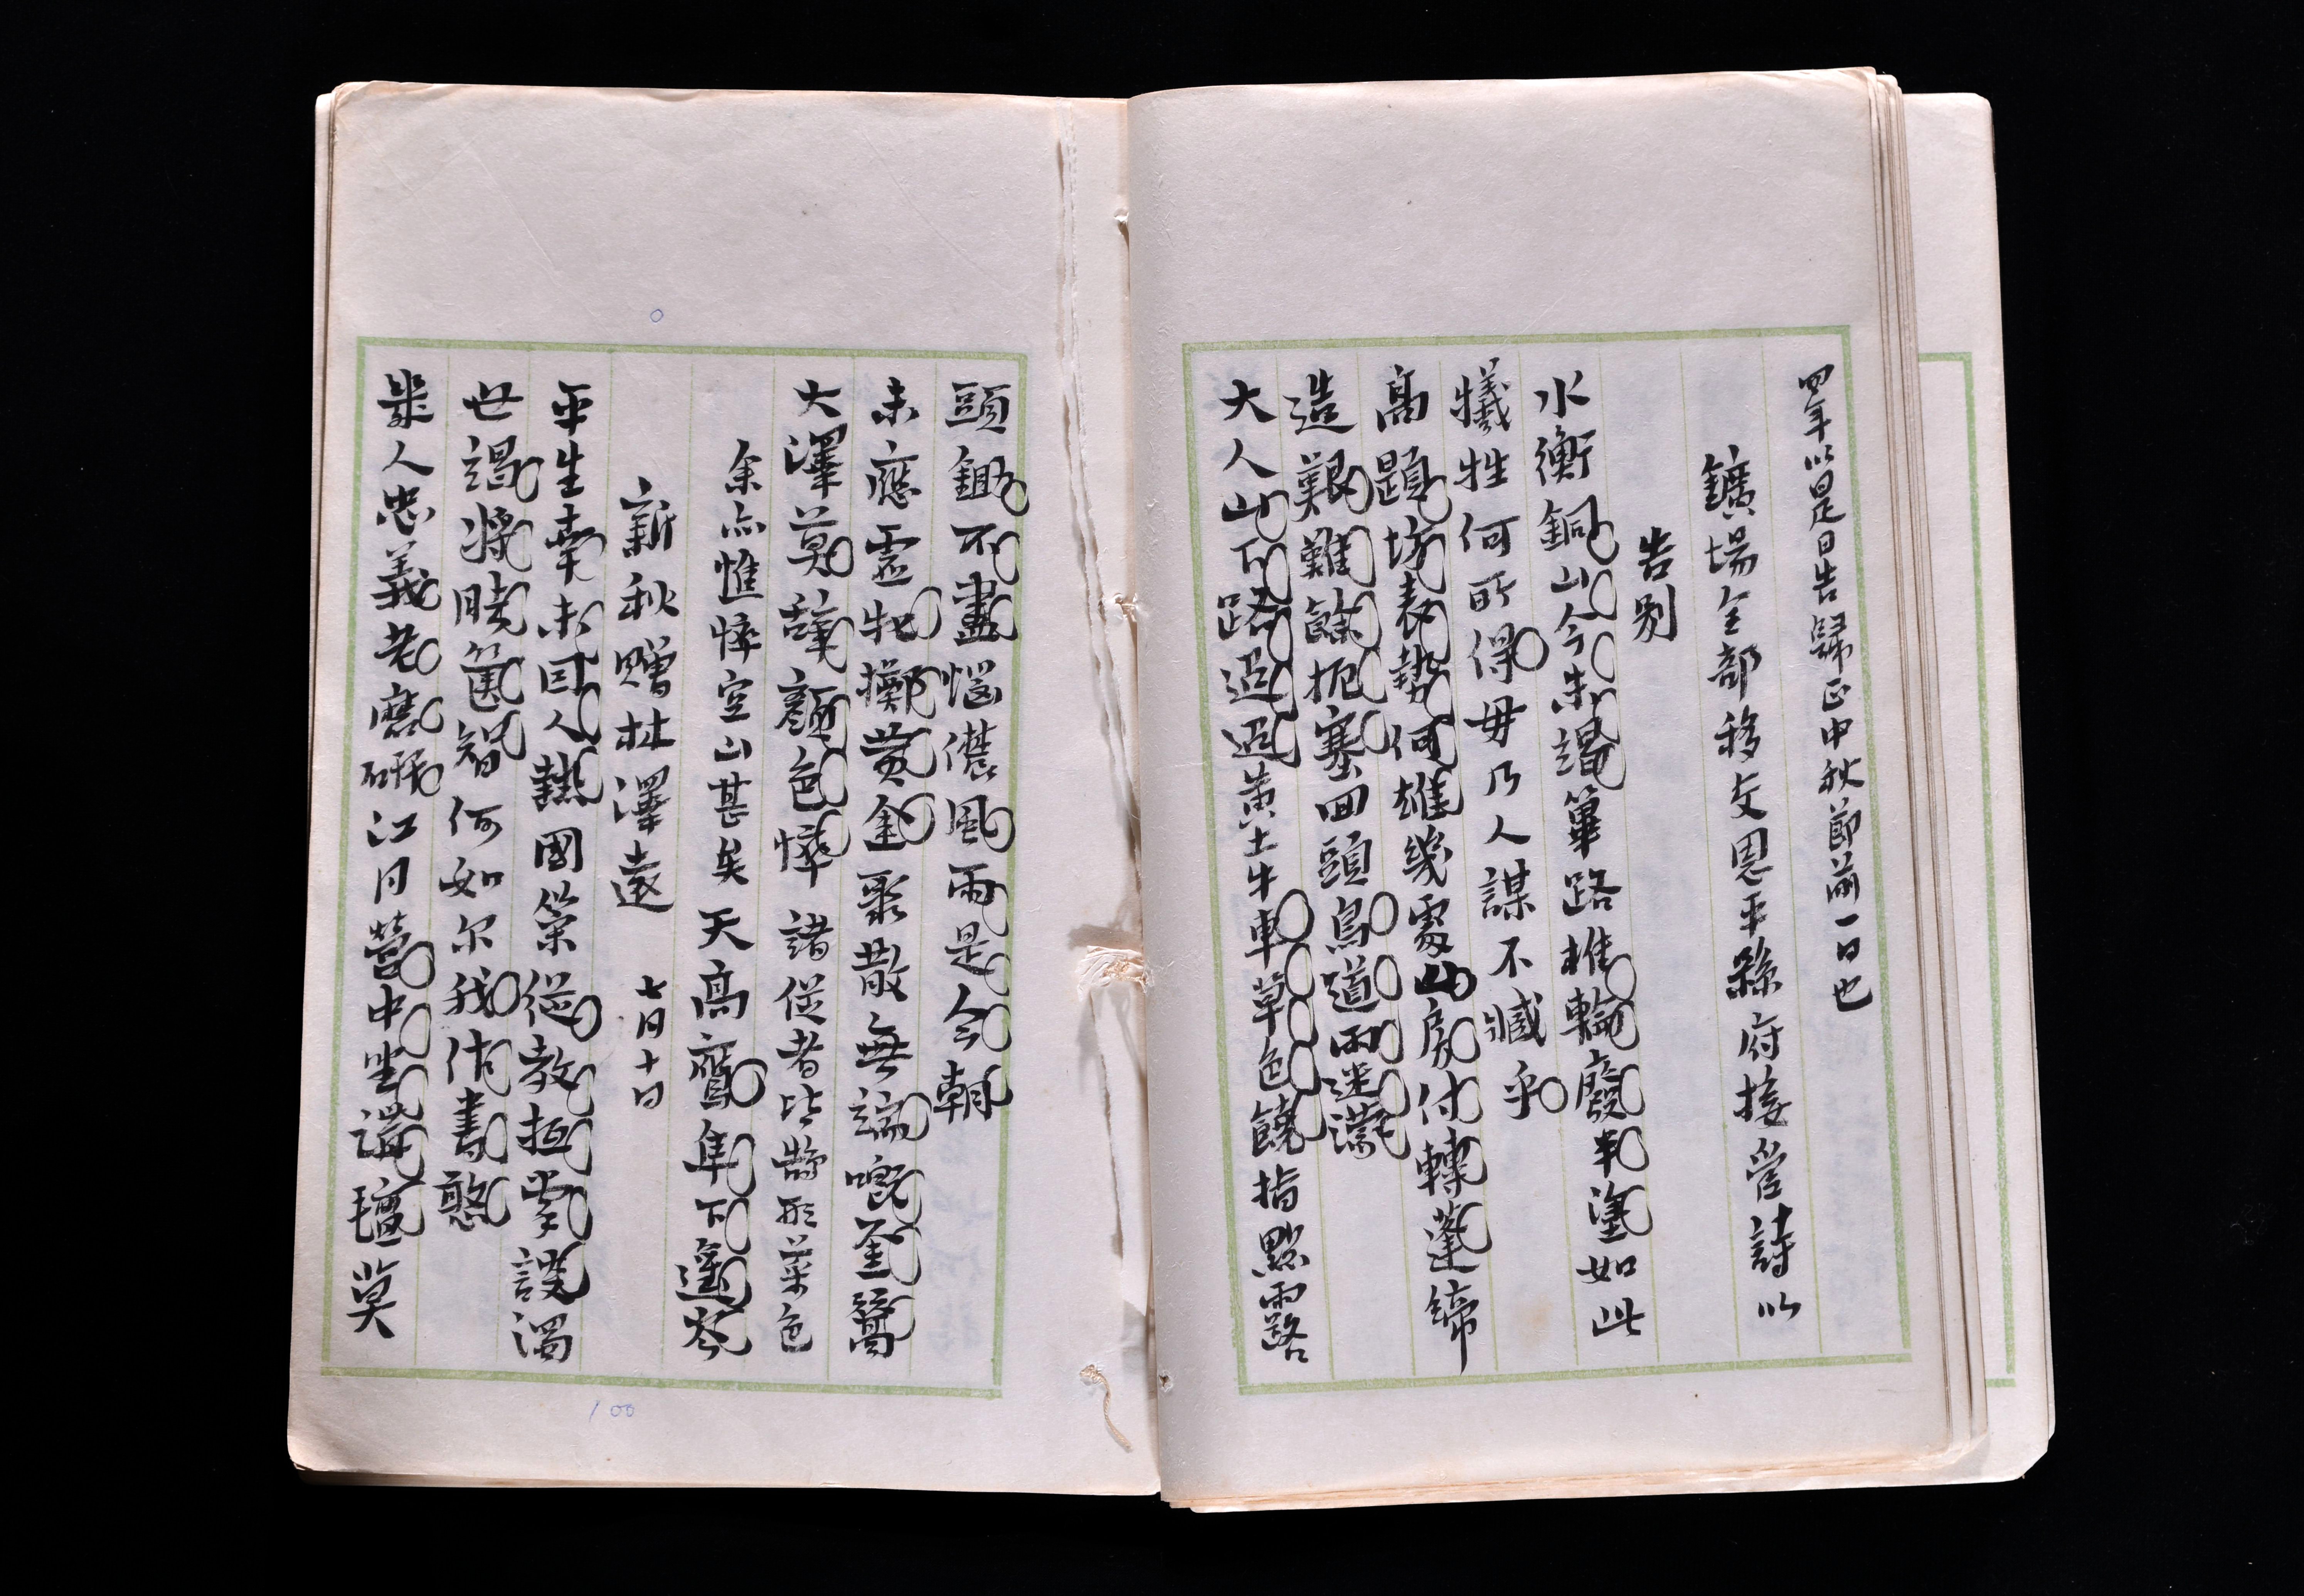 四年以是日告歸正中秋節前一日也
鑛場全部移交恩平縣府接管詩以
告別
水衡銅山今未謁篳路推輪廢半塗如此
犧牲何所得毋乃人謀不臧乎
高題坊表勢何雄幾處山房付轉蓬締
造艱難餘扼塞回頭鳥道雨迷濛
大人山下路迢迢黃土牛車草色饒指點雨露
頭鋤不盡惱儂風雨是今朝
未應靈牝擲黃金聚散無端嘅盍簪
大澤莫辭顏色悴 諸從者皆鵠形菜色
余亦憔悴空山甚矣 天高鷹隼下遙岑
新秋贈杜澤遠 七月十日
平生幸未因人熱國策從教抵掌談濁
世謁將勝箇智何如尔我作書憨
幾人忠義老磨研江月營中坐講氈莫
〇
100